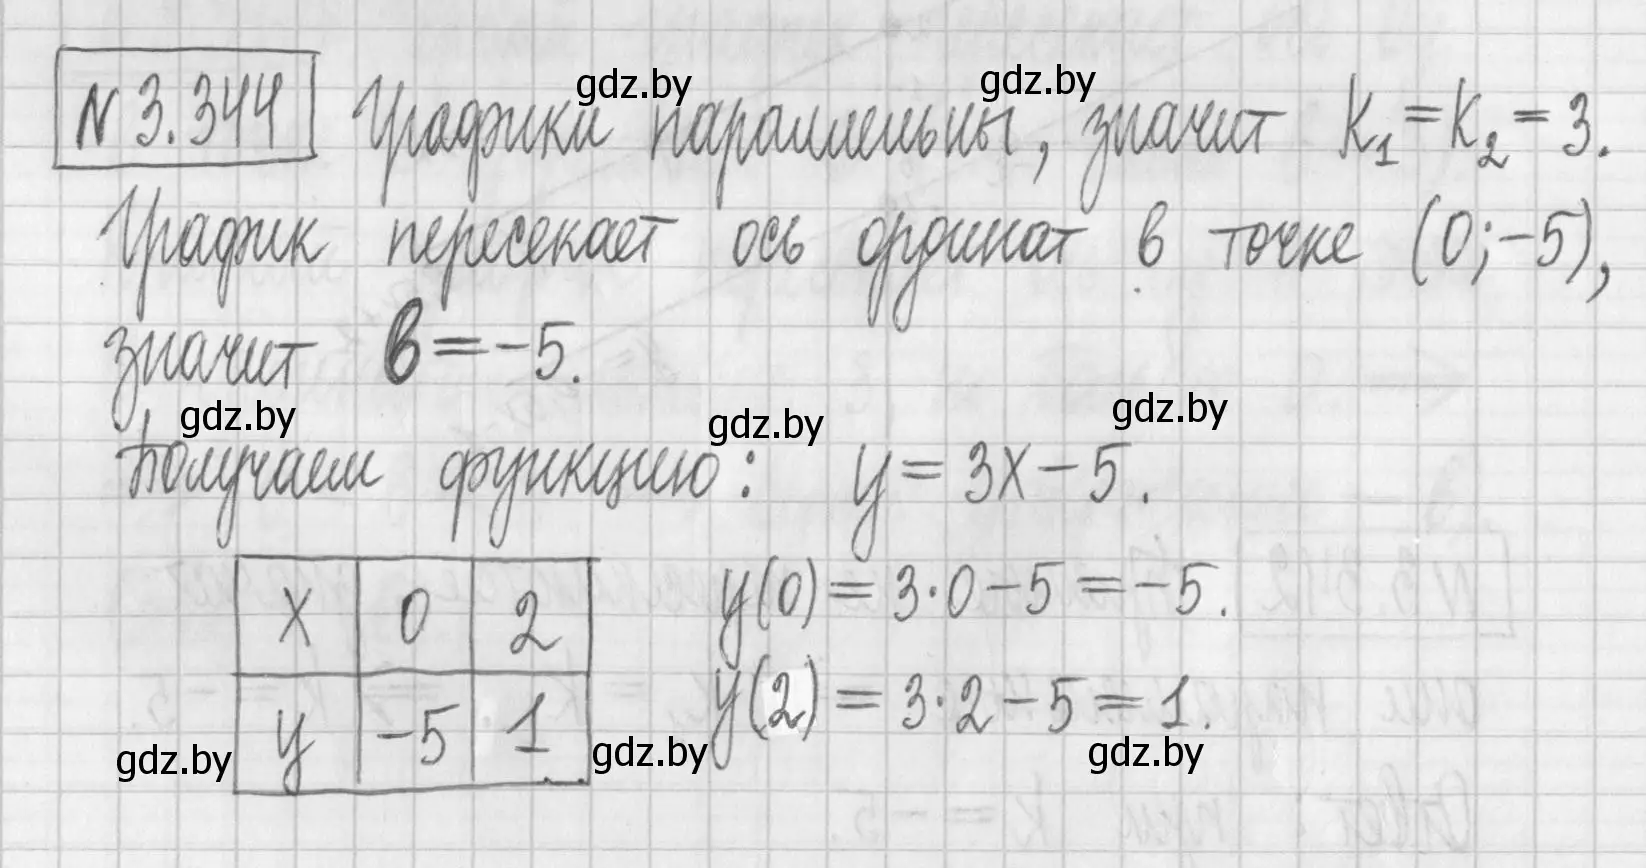 № 3.344 Графики параллельны, значит K₁ = K₂ = 3.
График пересекает ось ординат в точке (0; -5),
значит в = -5.
Получаем функцию: y = 3x - 5.
x 0 2
y -5 1
y(0) = 3·0 - 5 = -5.
y(2) = 3·2 - 5 = 1.
gdz.by
gdz.by
gdz.by
gdz.by
gdz.by
gdz.by
gdz.by
gdz.by